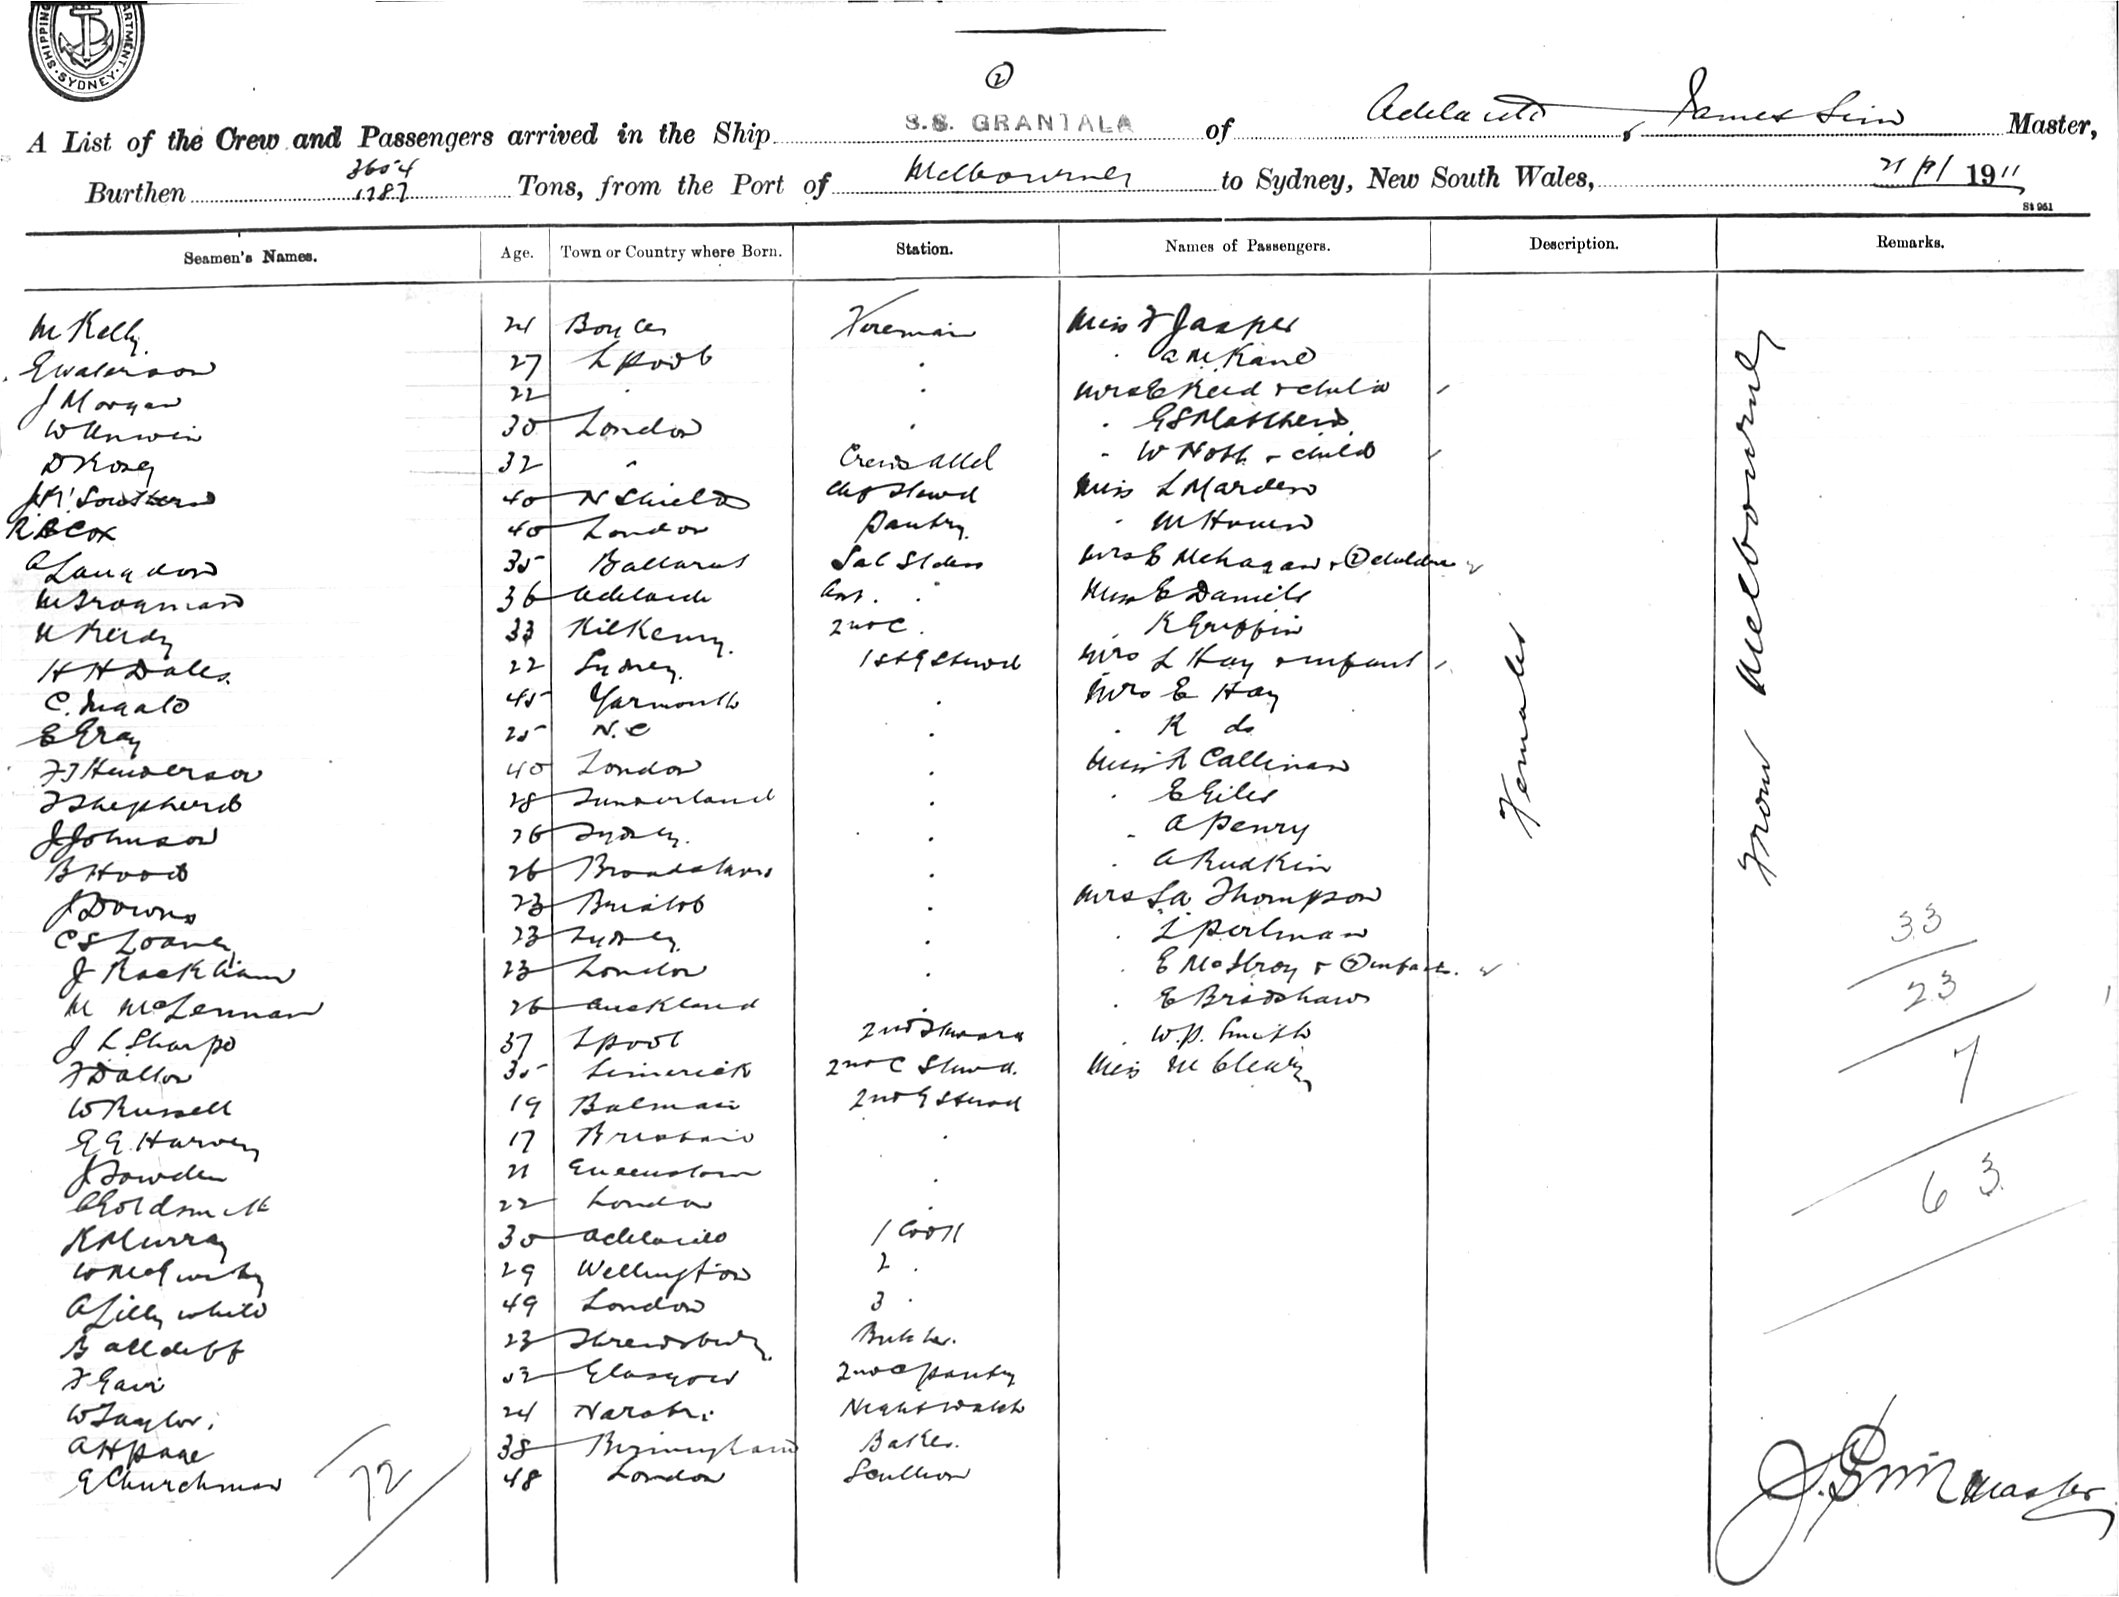 SHIPPING DEPARTMENT SYDNEY
2
A List of the Crew and Passengers arrived in the Ship S.S. GRANTALA of Adelaide, James Sim Master,
Burthen 3654 1787 Tons, from the Port of Melbourne to Sydney, New South Wales, 1911
St 961
Seamen's Names. Age. Town or Country where Born. Station. Names of Passengers. Description. Remarks.
M Kelly 24 Fireman Miss F Jasper
27 Lpool . . A McKane
J Morgan 22 . . Mrs E Reid & child
W Unwin 30 London . . G S Matthews
D 32 " Crews Attd . W Nott & child
40 N Shields Chf Stewd Miss L Marden
R B Cox 40 London Pantry .
A Langdon 35 Ballarat Sal Mrs E & 2 children
M Trogman 36 Adelaide . Miss E Daniels
33 Kilkenny 2nd C . . K Griffin
H H Dales 22 Sydney 1st G Stewd Mrs L Hay & infant
C. 45 Yarmouth . Mrs E Hay
E Gray 25 N.C . . R do
F J Henderson 40 London . Miss R Callinan
F Shepherd 28 Sunderland . . E Giles
J Johnson 26 Sydney . . A Penry
B Hood 26 Broadstairs . . A Rudkin
J Downs 23 Bristol . Mrs S A Thompson
C S 23 Sydney . . L Perlman
J Rackham 23 London . . E McIlroy & 2 infants
M McLennan 26 Auckland . . E Bradshaw
J L Sharpe 37 Lpool 2nd Steward . W.P. Smith
F Dallow 35 Limerick 2nd C Stewd. Miss M Cleary
W Russell 19 Balmain 2nd G Stewd
G G Harvey 17 Brisbane .
J Sowden 21 Queenstown
C Goldsmith 22 London .
R Murray 30 Adelaide 1 Cook
W 29 Wellington 2 .
A Lillywhite 49 London 3 .
B 23 Shrewsbury Butcher.
F Gair 52 Glasgow 2nd C Pantry
W Taylor 24 Narabri Nightwatch
A H Page 38 Birmingham Baker.
G Churchman 48 London Scullion
72
Females
From Melbourne
33
23
7
63
J. Sim Master